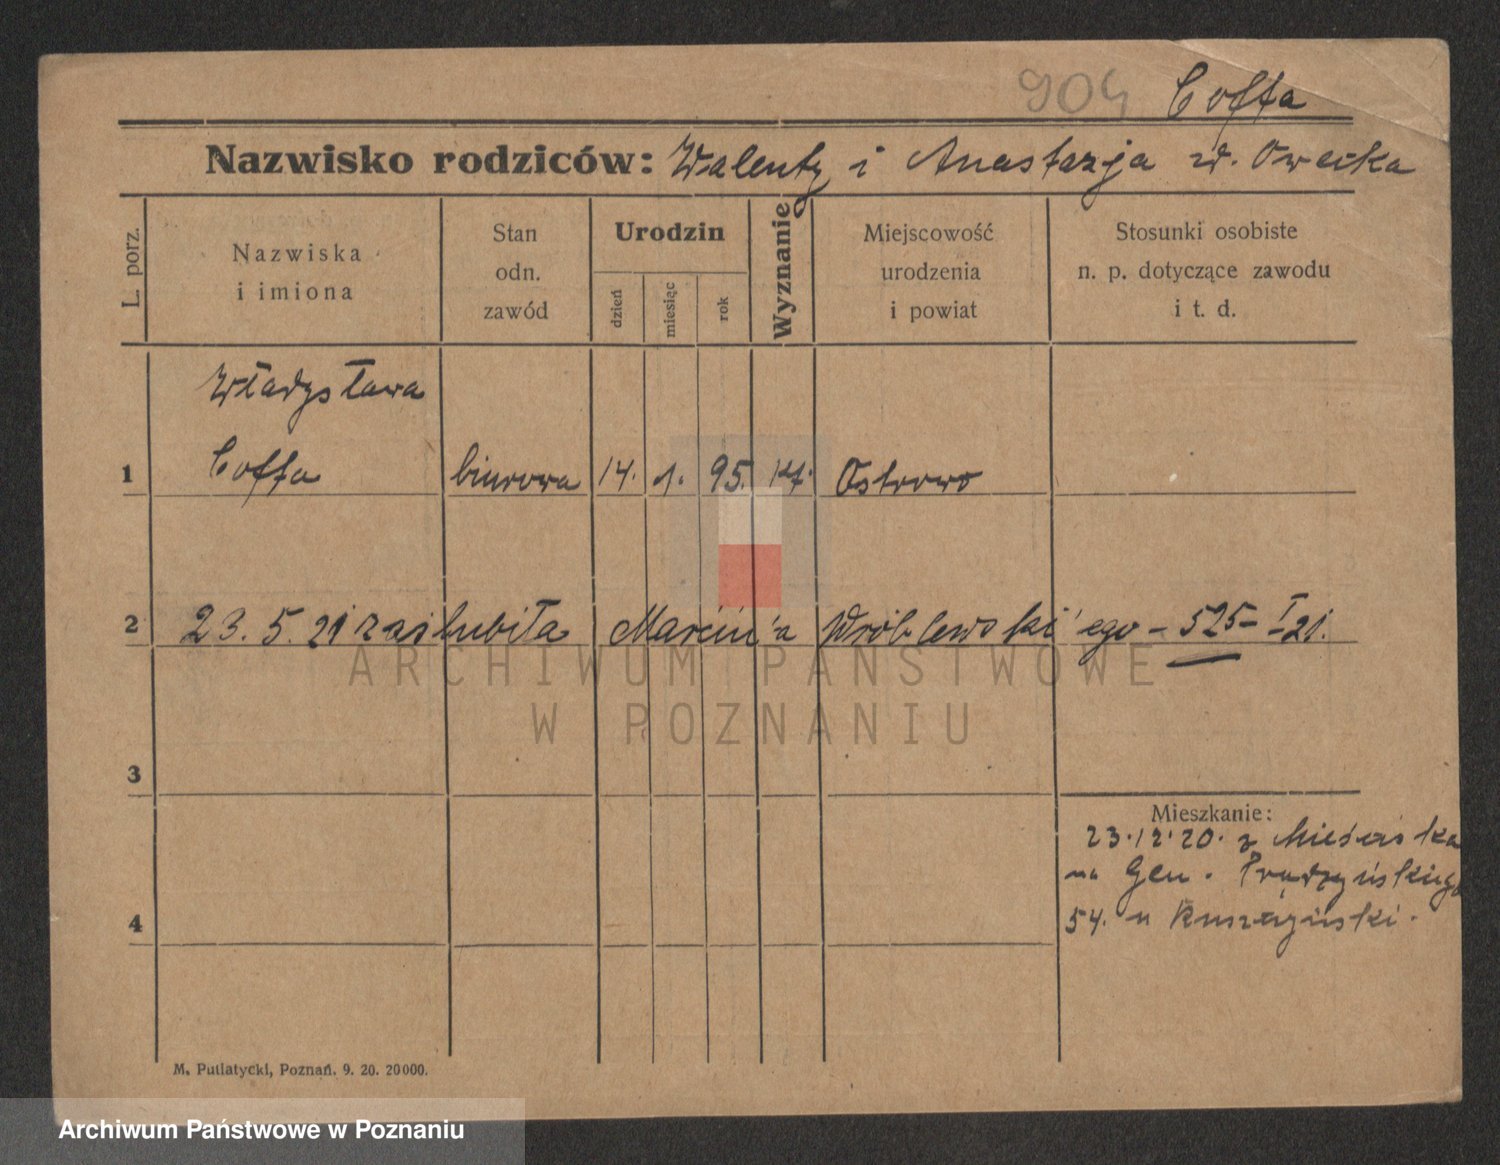 904 Coffa
Nazwisko rodziców: Walenty i Anastazja w. Owecka
L. porz.
Nazwiska
i imiona
Stan
odn.
zawód
Urodzin
dzień
miesiąc
rok
Wyznanie
Miejscowość
urodzenia
i powiat
Stosunki osobiste
n. p. dotyczące zawodu
i t. d.
Władysława
1 Coffa biurowa 14. 1. 95. kt. Ostrowo
2 23. 5. 21 zaślubiła Marcin'a Wróblewski'ego - 525 - I 21.
ARCHIWUM PAŃSTWOWE
W POZNANIU
3
Mieszkanie:
23.12.20. z
na Gen. Prądzyńskiego
4 54. u
M. Putiatycki, Poznań. 9. 20. 20000.
Archiwum Państwowe w Poznaniu